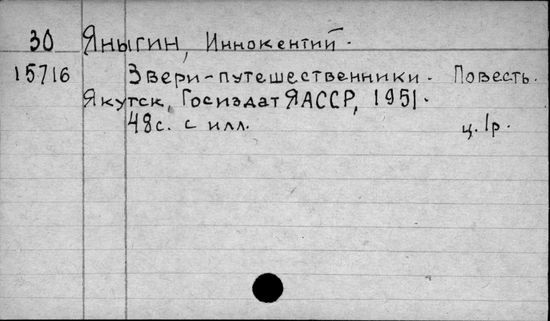 30 Яныгин, Иннокентий.
15716 Звери-путешественники. Повесть.
Якутск, Госиздат ЯАССР, 1951.
48с. с илл. ц. 1р.